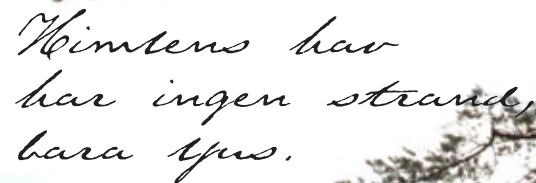 Himlens hav
har ingen strand,
bara ljus.